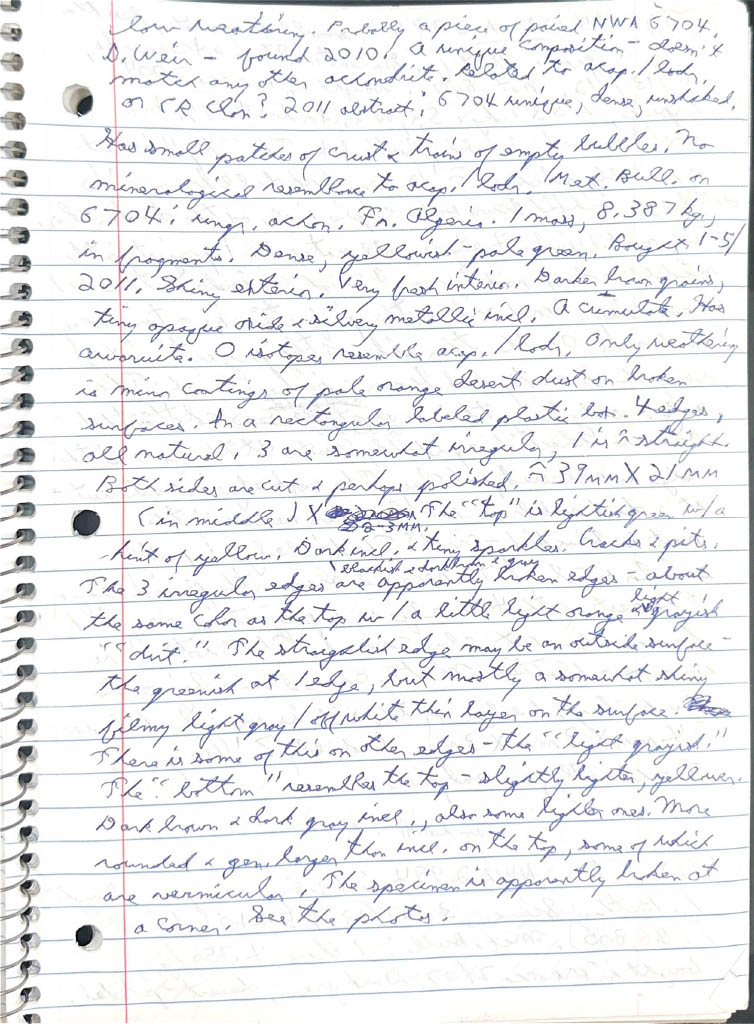 low weathering. Probably a piece of paired NWA 6704.
D. Weir – found 2010. A unique composition – doesn't
match any other achondrite. Related to acap./lodr.
or CR clan? 2011 abstract: 6704 unique, dense, unshocked.
Has small patches of crust & trains of empty bubbles. No
mineralogical resemblance to acap./lodr. Met. Bull. on
6704: ungr. achon. Fn. Algeria. 1 mass, 8.387 kg,
in fragments. Dense, yellowish-pale green. Bought 1-5/
2011. Shiny exterior. Very fresh interior. Darker brown grains,
tiny opaque oxide & silvery metallic incl. A cumulate. Has
awaruite. O isotopes resemble acap./lodr. Only weathering
is minor coatings of pale orange desert dust on broken
surfaces. In a rectangular labeled plastic box. 4 edges,
all natural, 3 are somewhat irregular, 1 is ≈ straight.
Both sides are cut & perhaps polished. ≈ 39MM X 21MM
(in middle) X 2-3MM. The "top" is lightish green w/a
hint of yellow. Dark incl. & tiny sparkles. Cracks & pits.
blackish & dark brown & gray
The 3 irregular edges are apparently broken edges – about
the same color as the top w/a little light orange & light grayish
"dirt." The straightish edge may be an outside surface –
the greenish at 1 edge, but mostly a somewhat shiny
filmy light gray/off white thin layer on the surface.
There is some of this on other edges – the "light grayish."
The "bottom" resembles the top – slightly lighter, yellower.
Dark brown & dark gray incl., also some lighter ones. More
rounded & gen. larger than incl. on the top, some of which
are vermicular. The specimen is apparently broken at
a corner. See the photos.